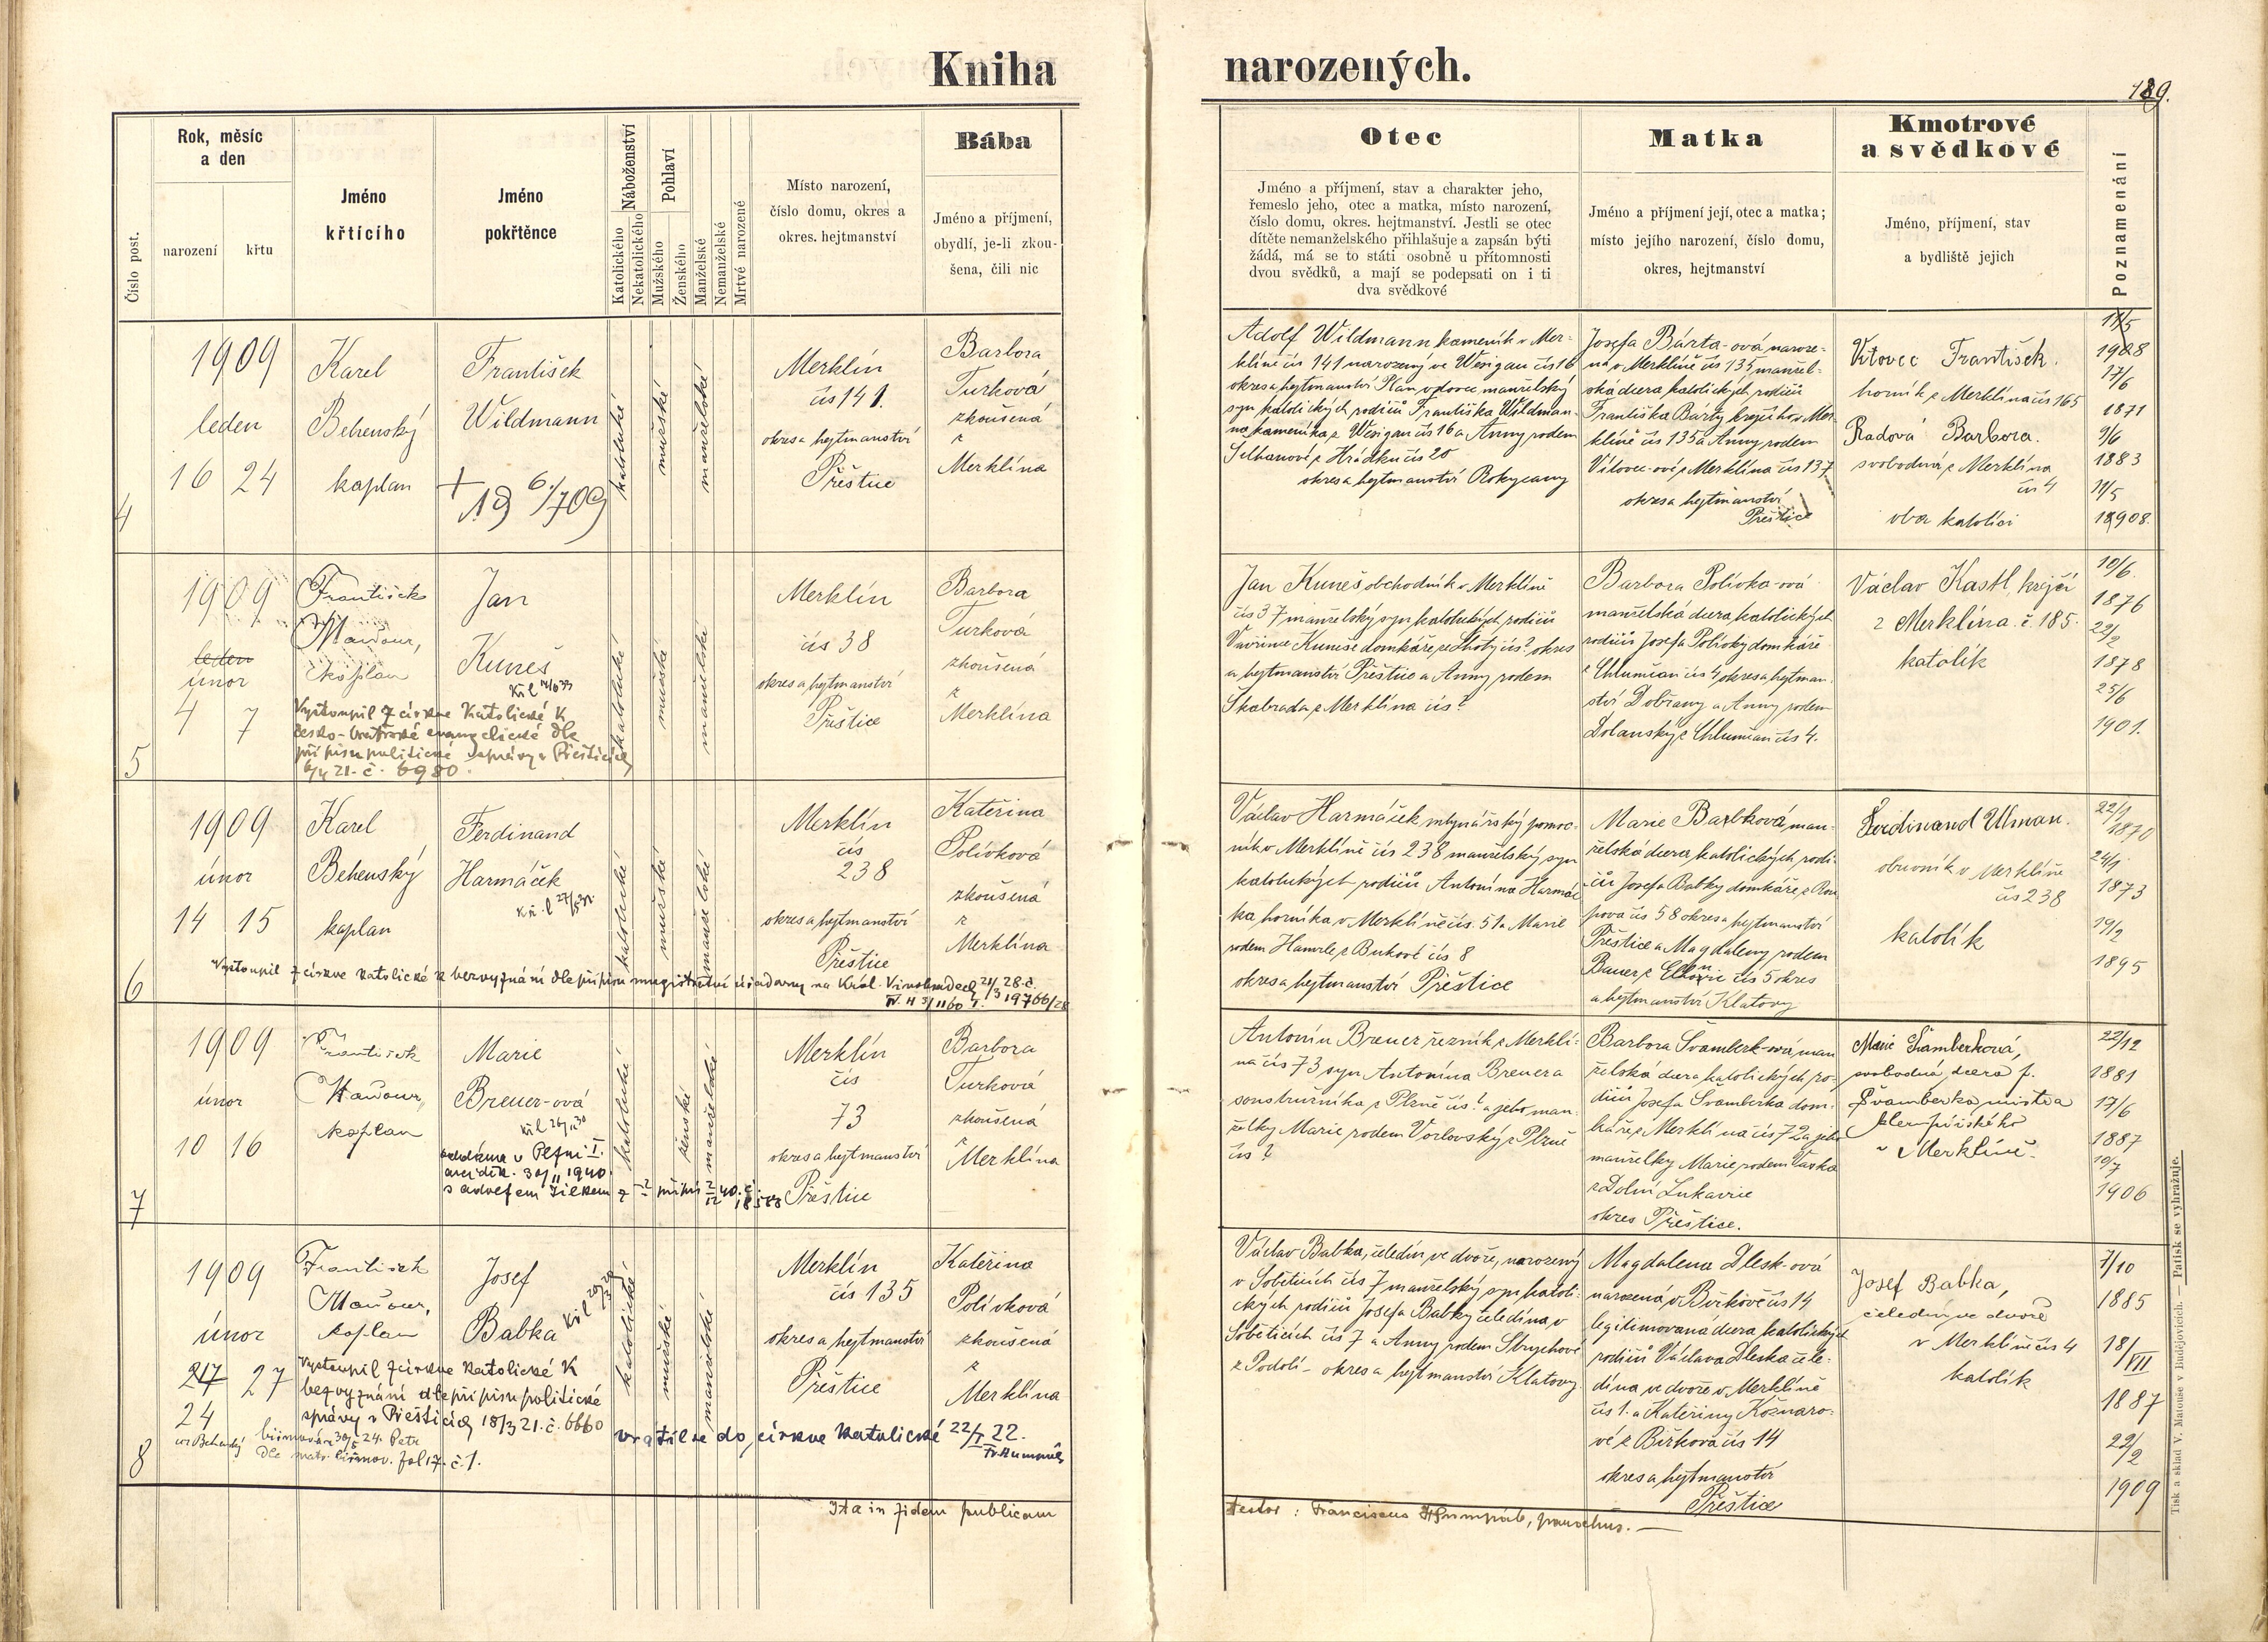 Kniha narozených.
189.
Číslo post.
Rok, měsíc
a den
narození
křtu
Jméno
křtícího
Jméno
pokřtěnce
Náboženství
Katolického
Nekatolického
Pohlaví
Mužského
Ženského
Manželské
Nemanželské
Mrtvé narozené
Místo narození,
číslo domu, okres a
okres. hejtmanství
Bába
Jméno a příjmení,
obydlí, je-li zkou-
šena, čili nic
Otec
Jméno a příjmení, stav a charakter jeho,
řemeslo jeho, otec a matka, místo narození,
číslo domu, okres. hejtmanství. Jestli se otec
dítěte nemanželského přihlašuje a zapsán býti
žádá, má se to státi osobně u přítomnosti
dvou svědků, a mají se podepsati on i ti
dva svědkové
Matka
Jméno a příjmení její, otec a matka;
místo jejího narození, číslo domu,
okres, hejtmanství
Kmotrové
a svědkové
Jméno, příjmení, stav
a bydliště jejich
Poznamenání
4
1909
leden
16 24
Karel
Behenský
kaplan
František
Wildmann
+
19 6/7 09
katolické
mužské
manželské
Merklín
čís 141.
okres a hejtmanství
Přeštice
Barbora
Turková
zkoušená
z
Merklína
Adolf Wildmann kameník v Mer-
klíně čís 141 narozený ve Wesigau čís 16
okres a hejtmanství Plan vdovec manželský
syn katolických rodičů Františka Wildman-
na kameníka z Wesigau čís 16 a Anny rodem
z Hrádku čís 20
okres a hejtmanství Rokycany
Josefa Bárta-ová naroze-
ná v Merklíně čís 135 manžel-
ská dcera katolických rodičů
Františka Barty krejčího v Mer-
klíně čís 135 a Anny rodem
Vítovec-ové z Merklína čís 137
okres a hejtmanství
Přeštice
Vítovec František.
horník z Merklína čís 165
Radová Barbora.
svobodná z Merklína
čís 4
oba katolíci
11/5
1908
17/6
1871
9/6
1883
11/5
1908.
5
1909
leden
únor
4 7
František
Maňour,
kaplan
Jan
Kuneš
Vystoupil z církve Katolické k
česko-bratrské evangelické dle
přípisu politické správy v Přešticích
21. č. 6980.
katolické
mužské
manželské
Merklín
čís 38
okres a hejtmanství
Přeštice
Barbora
Turková
zkoušená
z
Merklína
Jan Kuneš obchodník v Merklíně
čís 37 manželský syn katolických rodičů
Vavřince Kuneše domkáře ze Lhoty čís? okres
a hejtmanství Přeštice a Anny rodem
Skabrada z Merklína čís?
Barbora Polívka-ová
manželská dcera katolických
rodičů Josefa Polívky domkáře
z Chlumčan čís 4 okres a hejtman-
ství Dobřany a Anny rodem
Dolanský z Chlumčan čís 4.
Václav Kastl, krejčí
z Merklína č. 185.
katolík
10/6.
1876
22/2
1878
25/6
1901.
6
1909
únor
14 15
Karel
Behenský
kaplan
Ferdinand
Harmáček
Vystoupil z církve katolické k bezvyznání dle přípisu magistrátní úřadovny na Král. Vinohradech 21/3 28. č.
19766/28
katolické
mužské
manželské
Merklín
čís
238
okres a hejtmanství
Přeštice
Kateřina
Polívková
zkoušená
z
Merklína
Václav Harmáček mlynářský pomoc-
ník v Merklíně čís 238 manželský syn
katolických rodičů Antonína Harmáč-
ka horníka v Merklíně čís. 51 a Marie
rodem Hamrle z Bukové čís 8
okres a hejtmanství Přeštice
Marie Babková man-
želská dcera katolických rodi-
čů Josefa Babky domkáře z Rou-
pova čís 58 okres a hejtmanství
Přeštice a Magdaleny rodem
Bauer z čís 5 okres
a hejtmanství Klatovy
Ferdinand Ulman.
obuvník v Merklíně
čís 238
katolík
22/1
1870
24/1.
1873
19/2
1895
7
1909
únor
10 16
František
Maňour,
kaplan
Marie
Breuer-ová
oddána v Plzni I.
arciděk. 30/11 1940
s Adolfem
katolické
ženské
manželské
Merklín
čís
73
okres a hejtmanství
Přeštice
Barbora
Turková
zkoušená
z
Merklína
Antonín Breuer řezník z Merklí-
na čís 73 syn Antonína Breuera
soustružníka z Plzně čís.? a jeho man-
želky Marie rodem Vorlovský z Plzně
čís?
Barbora Švamberk-ová man-
želská dcera katolických ro-
dičů Josefa Švamberka dom-
káře z Merklína čís 72 a jeho
manželky Marie rodem Vaska
z Dolní Lukavice
okres Přeštice.
Marie Švamberková,
svobodná, dcera J.
Švamberka, mistra
klempířského
v Merklíně.
22/12
1881
17/6
1887
10/7
1906
8
1909
únor
27
24
František
Maňour,
kaplan
Josef
Babka
Vystoupil z církve katolické k
bezvyznání dle přípisu politické
správy v Přešticích 18/3 21. č. 6660
biřmován 30/5 24. Petr
dle matr. biřmov. fol 17. č. 1.
vrátil se do církve katolické 22/I 22.
katolické
mužské
manželské
Merklín
čís 135
okres a hejtmanství
Přeštice
Kateřina
Polívková
zkoušená
z
Merklína
Václav Babka, čeledín ve dvoře, narozený
v Soběticích čís 7 manželský syn katoli-
ckých rodičů Josefa Babky čeledína v
Soběticích čís 7 a Anny rodem Strychové
z Podolí - okres a hejtmanství Klatovy
Magdalena Dlesk-ová
narozená v Biřkově čís 14
legitimovaná dcera katolických
rodičů Václava Dleska čele-
dína ve dvoře v Merklíně
čís 1. a Kateřiny Košnaro-
vé z Biřkova čís 14
okres a hejtmanství
Přeštice
Josef Babka,
čeledín ve dvoře
v Merklíně čís 4
katolík
7/10
1885
18/VII
1887
22/2
1909
Ita in fidem publicam
testor: Franciscus parochus.
Tisk a sklad V. Matouše v Budějovicích. — Patisk se vyhražuje.